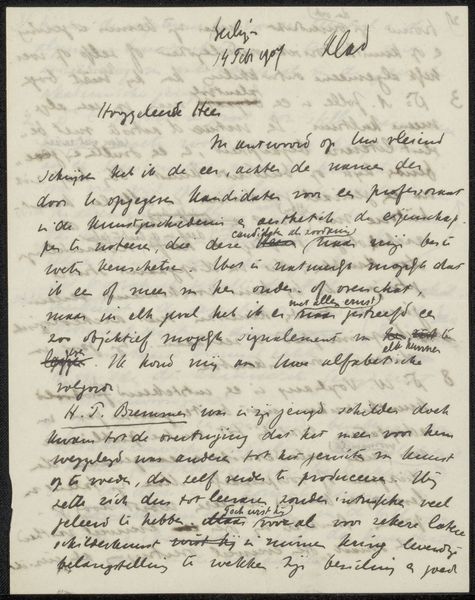 14 Feb 1907 Klad
Hooggeleerde Heer
In antwoord op Uw vleiend
schrijven heb ik de eer, achter de namen der
door U opgegeven kandidaten voor een professoraat
in de kunstgeschiedenis en aesthetik de eigenschap-
pen te noteren, die deze kandidaten als zoodanig naar mijn beste
weten kenschetsen. Het is natuurlijk mogelijk dat
ik een of meer hen onder- of overschat,
maar in elk geval heb ik er met allen ernst gestreefd een
zoo objektief mogelijk signalement van elk kunnen
geven. Ik houd mij aan Uwe alfabetische
volgorde
H. P. Bremmer was in zijn jeugd schilder doch
kwam tot de overtuiging dat het meer voor hem
weggelegd was anderen tot het genieten van kunst
op te voeden, dan zelf verder te produceeren. Hij
zette zich dus tot leeraren zonder veel
geleerd te hebben doch wist hij vooral voor zekere
schilderkunst in ruimen kring levendige
belangstelling te wekken. Zijn en goede